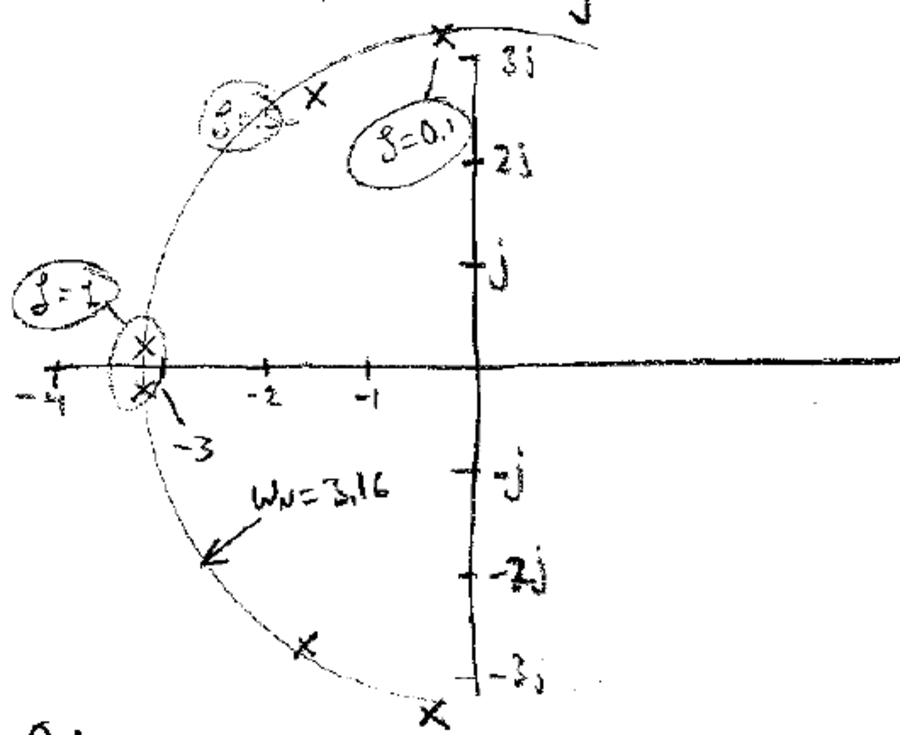 3j
ζ=0.1
2j
j
ζ=1
-4
-2
-1
-3
-j
ωN=3.16
-2j
-3j